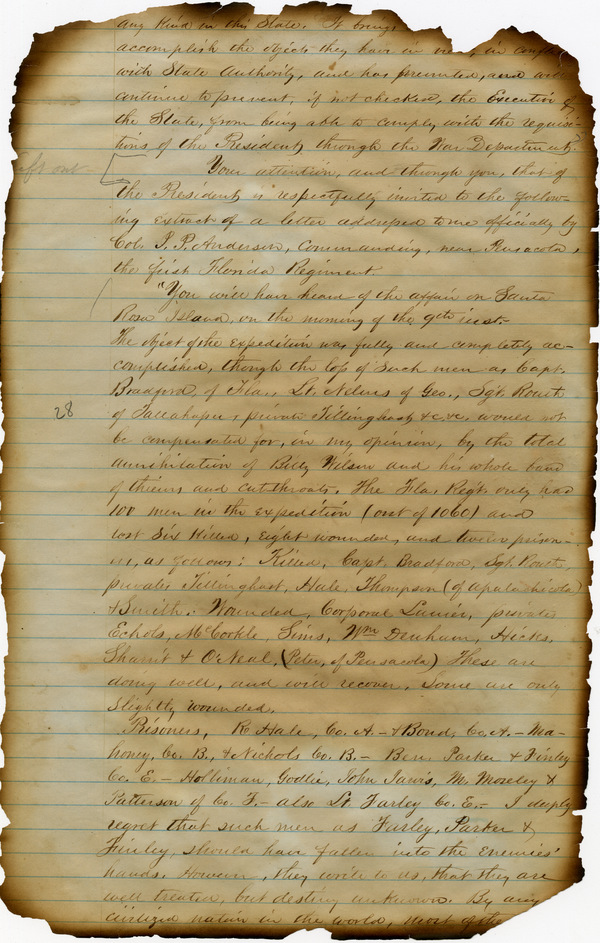 any kind in this State. It brings
accomplish the objects they have in view, in conflict
with State Authority, and has prevented, and will
continue to prevent, if not checked, the Executive of
the State, from being able to comply with the requisi-
tions of the President, through the War Department.
Your attention, and through you, that of
the President, is respectfully invited to the follow-
ing extract of a letter addressed to me officially by
Col. J. P. Anderson, Commanding, near Pensacola,
the first Florida Regiment.
"You will have heard of the affair on Santa
Rosa Island, on the morning of the 9th inst.-
The object of the expedition was fully and completely ac-
complished, though the loss of such men as Capt.
28
Bradford, of Fla., Lt. Nelms of Geo., Sgt. Routh
of Tallahassee, private Tillinghast &c &c. would not
be compensated for, in my opinion, by the total
annihilation of Billy Wilson and his whole band
of thieves and cutthroats. The Fla. Regt. only had
100 men in the expedition (out of 1060) and
lost Six Killed, Eight wounded, and twelve prison-
ers, as follows: Killed, Capt. Bradford, Sgt. Routh,
privates Tillinghast, Hale, Thompson (of Apalachicola)
& Smith. Wounded, Corporal Lanier, privates
Echols, McCorkle, Sims, Wm Denham, Hicks,
Sharrit & O'Neal, (Peter, of Pensacola) These are
doing well, and will recover. Some are only
slightly wounded.
Prisoners, R. Hale, Co. A. - & Bond, Co. A. - Ma-
honey, Co. B., & Nichols Co. B. - Parker & Finley
Co. E. - Holliman, Godlie, John Jarvis, M. Moseley &
Patterson of Co. F. - also Lt. Farley Co. E. - I deeply
regret that such men as Farley, Parker &
Finley, should have fallen into the Enemies'
hands. However, they write to us, that they are
well treated, but destiny unknown. By any
civilized nation in the world, most of the